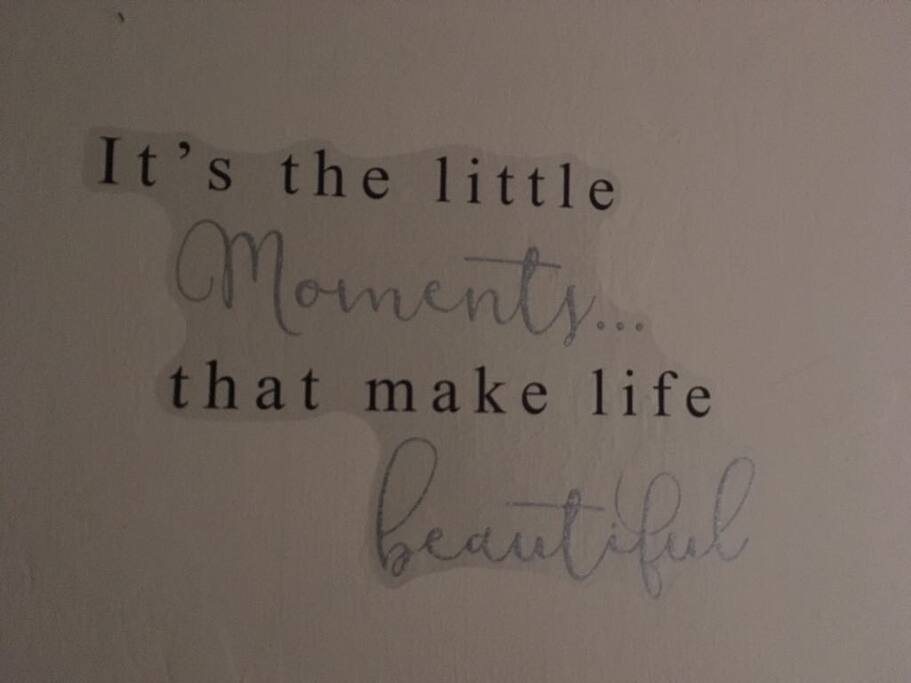 It’s the little
Moments...
that make life
beautiful